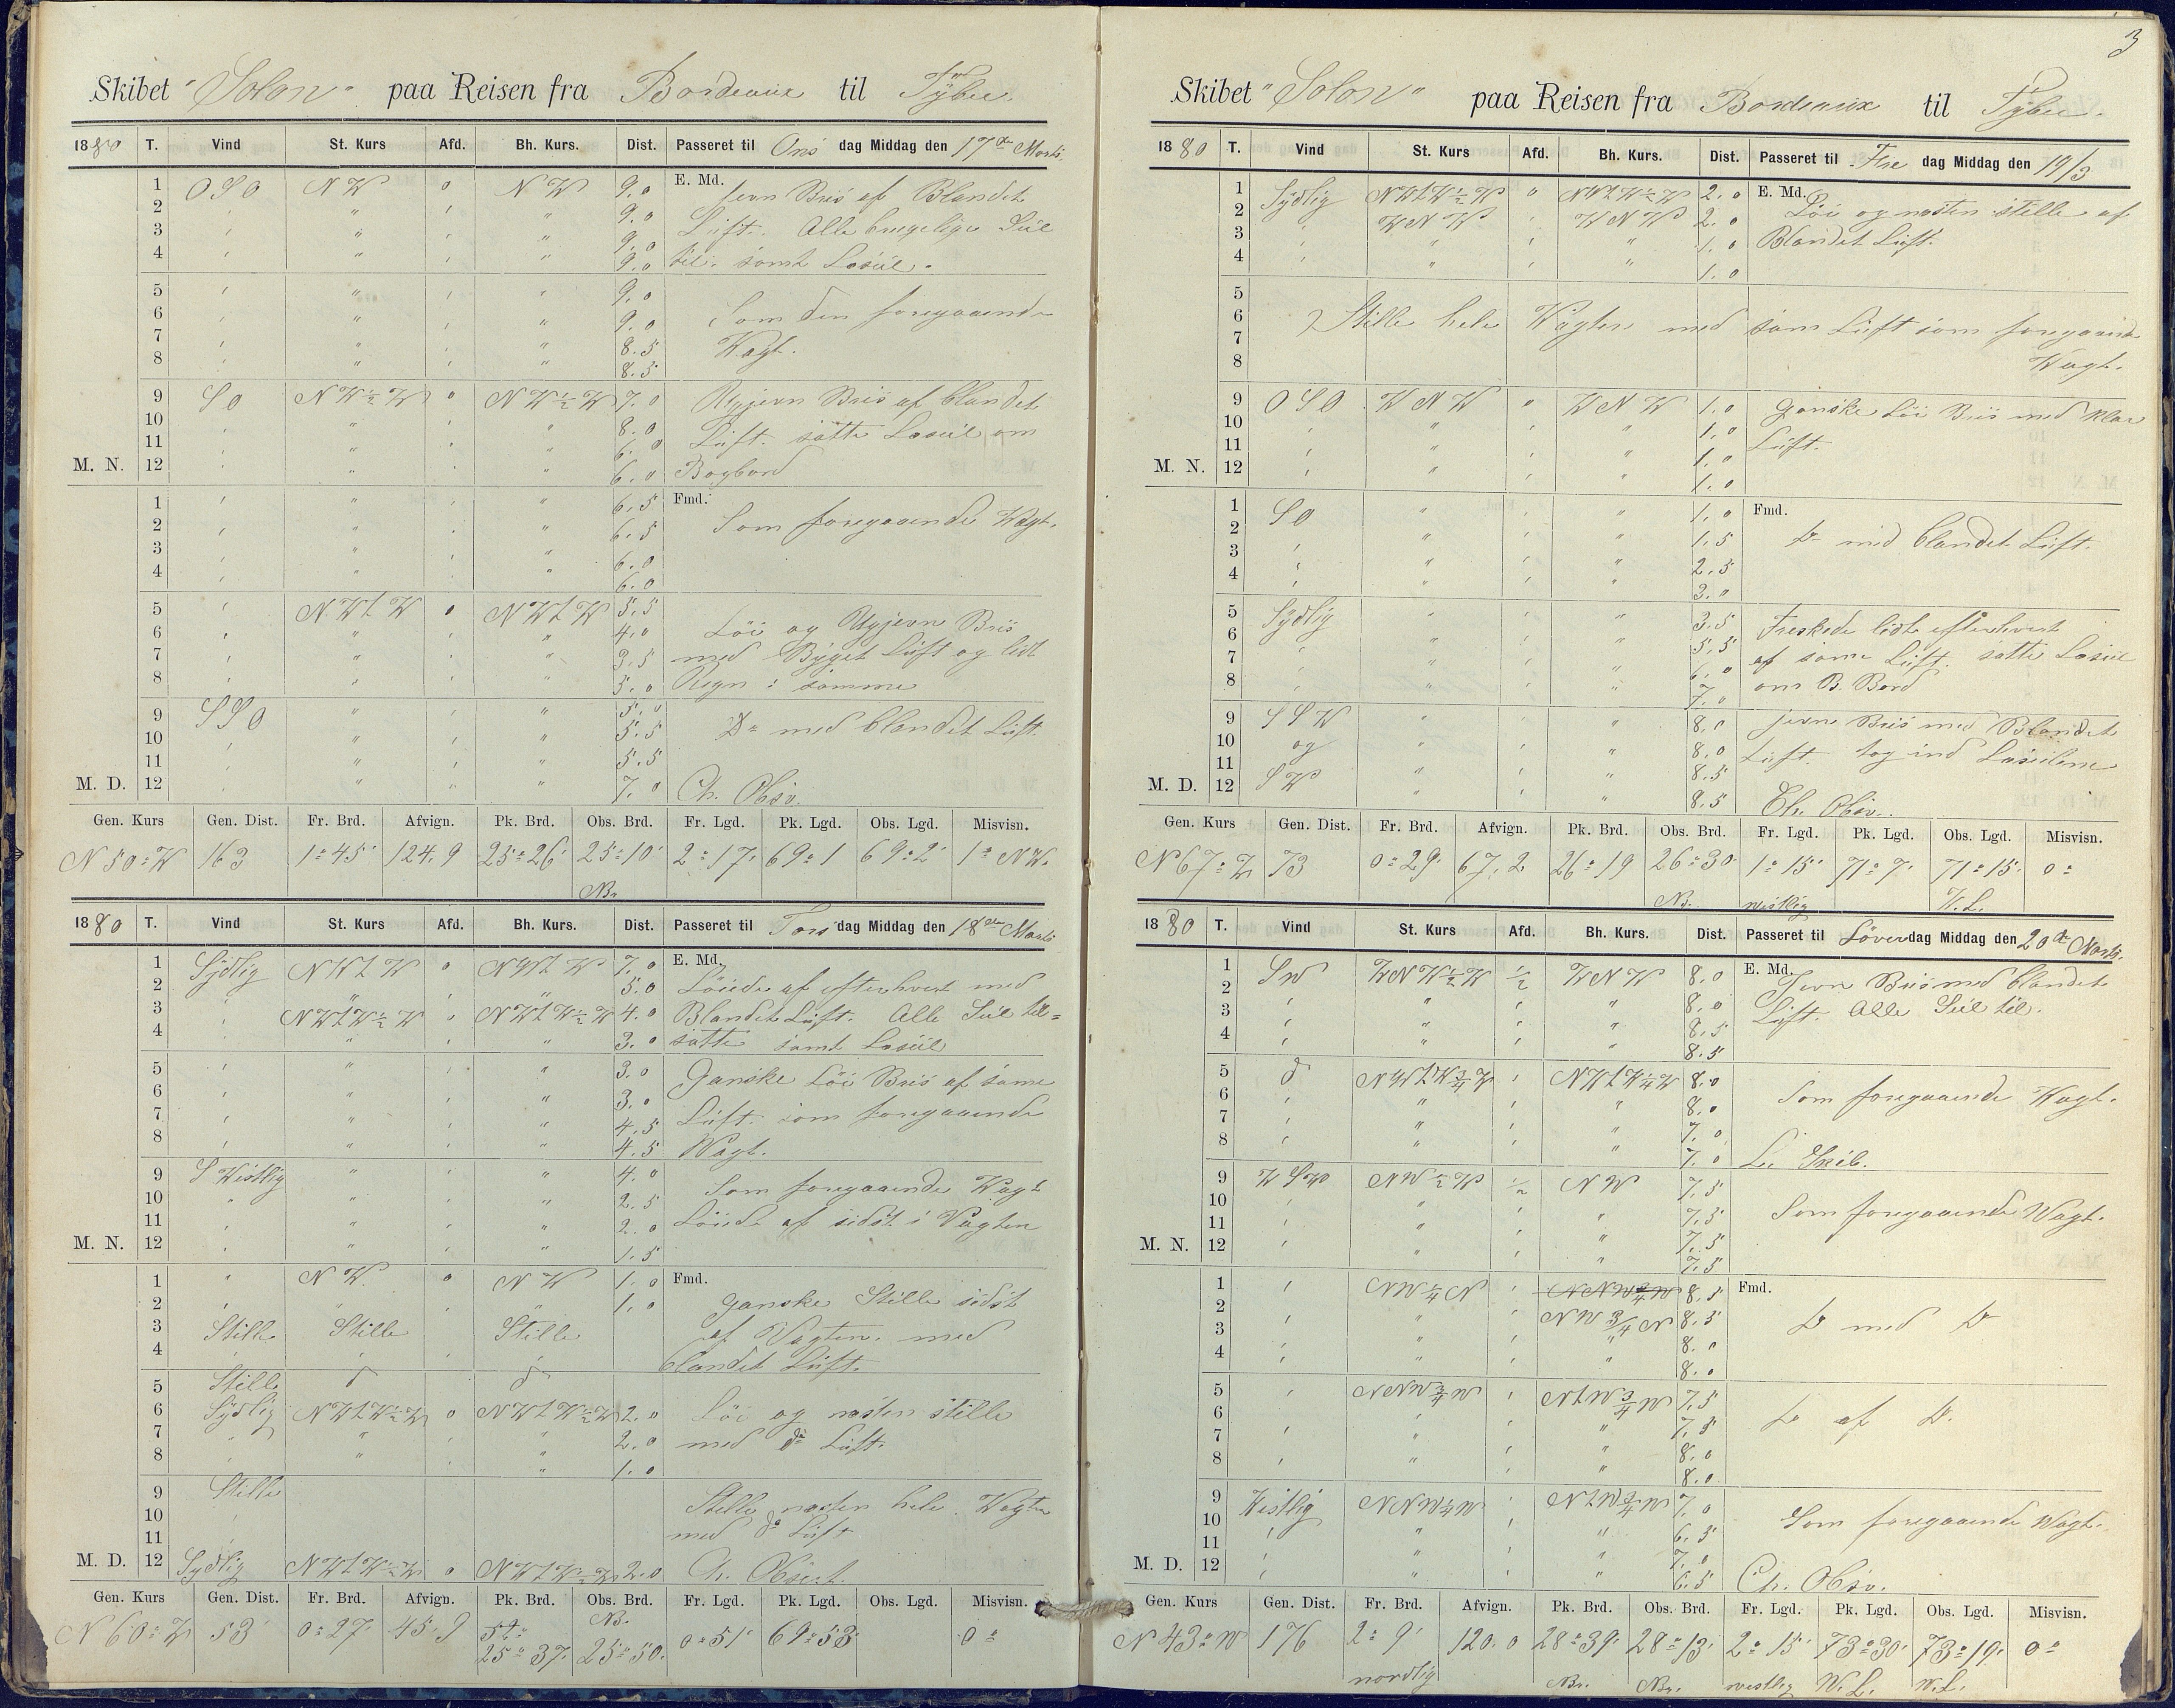 Skibet "Solon" paa Reisen fra Bordeaux til Tÿbee.
1880 T. Vind St. Kurs Afd. Bh. Kurs. Dist. Passeret til Ons dag Middag den 17de Marts.
1 OSO NW 0 NW 9.0 E. Md. Jevn Bris af Blandet
2 " " " " 9.0 Lüft. Alle brugelige Seil
3 " " " " 9.0
4 " " " " 9.0 til. samt Læseil.
5 " " " " 9.0
6 " " " " 9.0 Som den foregaaende
7 " " " " 8.5 Wagt.
8 " " " " 8.5
9 SO NW½W 0 NW½W 7.0 Ugjevn Bris af blandet
10 " " " " 8.0 Lüft. satte Læseil om
11 " " " " 6.0
M. N. 12 " " " " 6.0 Bagbord
1 " " " " 6.5 Fmd.
2 " " " " 6.5 Som foregaaende Wagt.
3 " " " " 6.0
4 " " " " 6.0
5 " NWtW 0 NWtW 5.5
6 " " " " 4.0 Löi og Ugjevn Bris
7 " " " " 3.5 med Byget Lüft og lidt
8 " " " " 5.0 Regn i samme
9 SSO " " " 5.0
10 " " " " 5.5 Do med blandet Lüft.
11 " " " " 5.5
M. D. 12 " " " " 7.0 Ch. Obsv.
Gen. Kurs Gen. Dist. Fr. Brd. Afvign. Pk. Brd. Obs. Brd. Fr. Lgd. Pk. Lgd. Obs. Lgd. Misvisn.
N 50° W 163 1°45' 124.9 25°26' 25°10' 2°17' 69°1 69°2' 1° NW.
Nr.
1880 T. Vind St. Kurs Afd. Bh. Kurs. Dist. Passeret til Tors dag Middag den 18de Marts
1 Sÿdlig NWtW 0 NWtW 7.0 E. Md.
2 " " " " 5.0 Löiede af efterhvert med
3 " NWtW½W " NWtW½W 4.0 Blandet Lüft. Alle Seil til=
4 " " " " 3.0 satte samt Læseil
5 " " " " 3.0 Ganske Löi Bris af same
6 " " " " 3.0
7 " " " " 4.5 Lüft. som foregaaende
8 " " " " 4.5 Wagt.
9 S Westlig " " " 4.0
10 " " " " 2.5 Som foregaaende Wagt
11 " " " " 2.0 Löiede af sidst i Vagten
M. N. 12 " " " " 1.5
1 " NW 0 NW 1.0 Fmd.
2 " " " " 1.0 ganske Stille sidst
3 Stille Stille Stille af Vagten. med
4 " " " " blandet Lüft.
5 Stille do do
6 Sÿdlig NWtW½W 0 NWtW½W 2.0 Löi og næsten stille
7 " " " " 2.0 med do Lüft.
8 " " " " 1.0
9 Stille
10 Stille næsten hele Wagten
11 med do Lüft
M. D. 12 Sydlig NWtW½W 0 NWtW½W 2.0 Ch. Obsert.
Gen. Kurs Gen. Dist. Fr. Brd. Afvign. Pk. Brd. Obs. Brd. Fr. Lgd. Pk. Lgd. Obs. Lgd. Misvisn.
Nr.
N 60° W 53' 0°27' 45.9 25°37' 25°50' 0°51' 69°53' 0°
3
Skibet "Solon" paa Reisen fra Bordeaux til Tÿbee.
1880 T. Vind St. Kurs Afd. Bh. Kurs. Dist. Passeret til Fre dag Middag den 19/3
1 Sÿdlig NWtW½W 0 NWtW½W 2.0 E. Md.
2 " WNW " WNW 2.0 Löi og næsten stille af
3 " " " " 1.0 Blandet Lüft.
4 " " " " 1.0
5
6 Stille hele Wagten med sam Lüft som foregaaende
7
8 Wagt.
9 OSO WNW " WNW 1.0 ganske Löi Bris med klar
10 " " " " 1.0
11 " " " " 1.0 Lüft.
M. N. 12 " " " " 1.0
1 SO " " " 1.0 Fmd.
2 " " " " 1.5 Do med blandet Lüft.
3 " " " " 2.5
4 " " " " 3.0
5 Sÿdlig " " " 3.5 Freskede lidt efterhvert
6 " " " " 5.5
7 " " " " 6.0 af same Lüft. satte Læseil
8 " " " " 7.0 om B. Bord
9 SSW " " " 8.0 jevn Bris med Blandet
10 og " " " 8.0
11 " " " 8.5 Lüft. tog ind Læseilene
M. D. 12 SW " " " 8.5 Ch. Obsv.
Gen. Kurs Gen. Dist. Fr. Brd. Afvign. Pk. Brd. Obs. Brd. Fr. Lgd. Pk. Lgd. Obs. Lgd. Misvisn.
N 67° W 73 0°29' 67.2 26°19 26°30 1°15' 71°7' 71°15' 0°
Nr. westlig W.L.
1880 T. Vind St. Kurs Afd. Bh. Kurs. Dist. Passeret til Löver dag Middag den 20de Marts.
1 SW WNW½W ½ WNW 8.0 E. Md.
2 " " " " 8.0 Jevn Bris med blandet
3 " " " " 8.5 Lüft. Alle Seil til.
4 " " " " 8.5
5 do NWtW¾W " NWtW¼W 8.0
6 " " " " 8.0 Som foregaaende Wagt.
7 " " " " 7.0
8 " " " " 7.0
9 WSW NW½W ½ NW 7.5
10 " " " " 7.5 Som foregaaende Wagt.
11 " " " " 7.5
M. N. 12 " " " " 7.5
1 " NW¼N " 8.5 Fmd.
2 " " " NW¾N 8.5 Do med Do
3 " " " " 8.0
4 " " " " 8.0
5 " NNW¾W " NtW¾W 7.5
6 " " " " 7.5 Do af Do.
7 " " " " 8.0
8 " " " " 8.0
9 Westlig NNW¼W " NtW¾W 7.0
10 " " " " 6.5 Som foregaaende Wagt.
11 " " " " 7.0
M. D. 12 " " " " 6.5 Ch. Obsv.
Gen. Kurs Gen. Dist. Fr. Brd. Afvign. Pk. Brd. Obs. Brd. Fr. Lgd. Pk. Lgd. Obs. Lgd. Misvisn.
N 43° W 176 2°9' 120.0 28°39' 28°13' 2°15' 73°30' 73°19' 0°
nordlig Nr. Nr. westlig W.L. W.L.